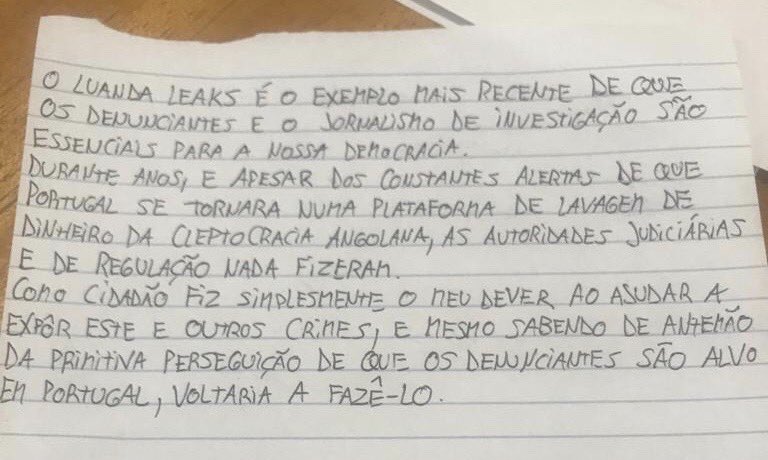 O LUANDA LEAKS É O EXEMPLO MAIS RECENTE DE QUE
OS DENUNCIANTES E O JORNALISMO DE INVESTIGAÇÃO SÃO
ESSENCIAIS PARA A NOSSA DEMOCRACIA.
DURANTE ANOS, E APESAR DOS CONSTANTES ALERTAS DE QUE
PORTUGAL SE TORNARA NUMA PLATAFORMA DE LAVAGEM DE
DINHEIRO DA CLEPTOCRACIA ANGOLANA, AS AUTORIDADES JUDICIÁRIAS
E DE REGULAÇÃO NADA FIZERAM.
COMO CIDADÃO FIZ SIMPLESMENTE O MEU DEVER AO AJUDAR A
EXPÔR ESTE E OUTROS CRIMES, E MESMO SABENDO DE ANTEMÃO
DA PRIMITIVA PERSEGUIÇÃO DE QUE OS DENUNCIANTES SÃO ALVO
EM PORTUGAL, VOLTARIA A FAZÊ-LO.